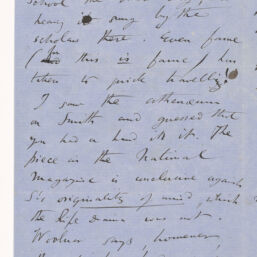 school
hearing it sung by the
scholars there. Even fame
( this is fame) has
taken to quick travelling!
I saw the Athenæum
on Smith and guessed that
you had a hand in it. The
piece in the National
Magazine is conclusive against
S's originality of mind, which
the Life Drama was not.
Woolner says, however,